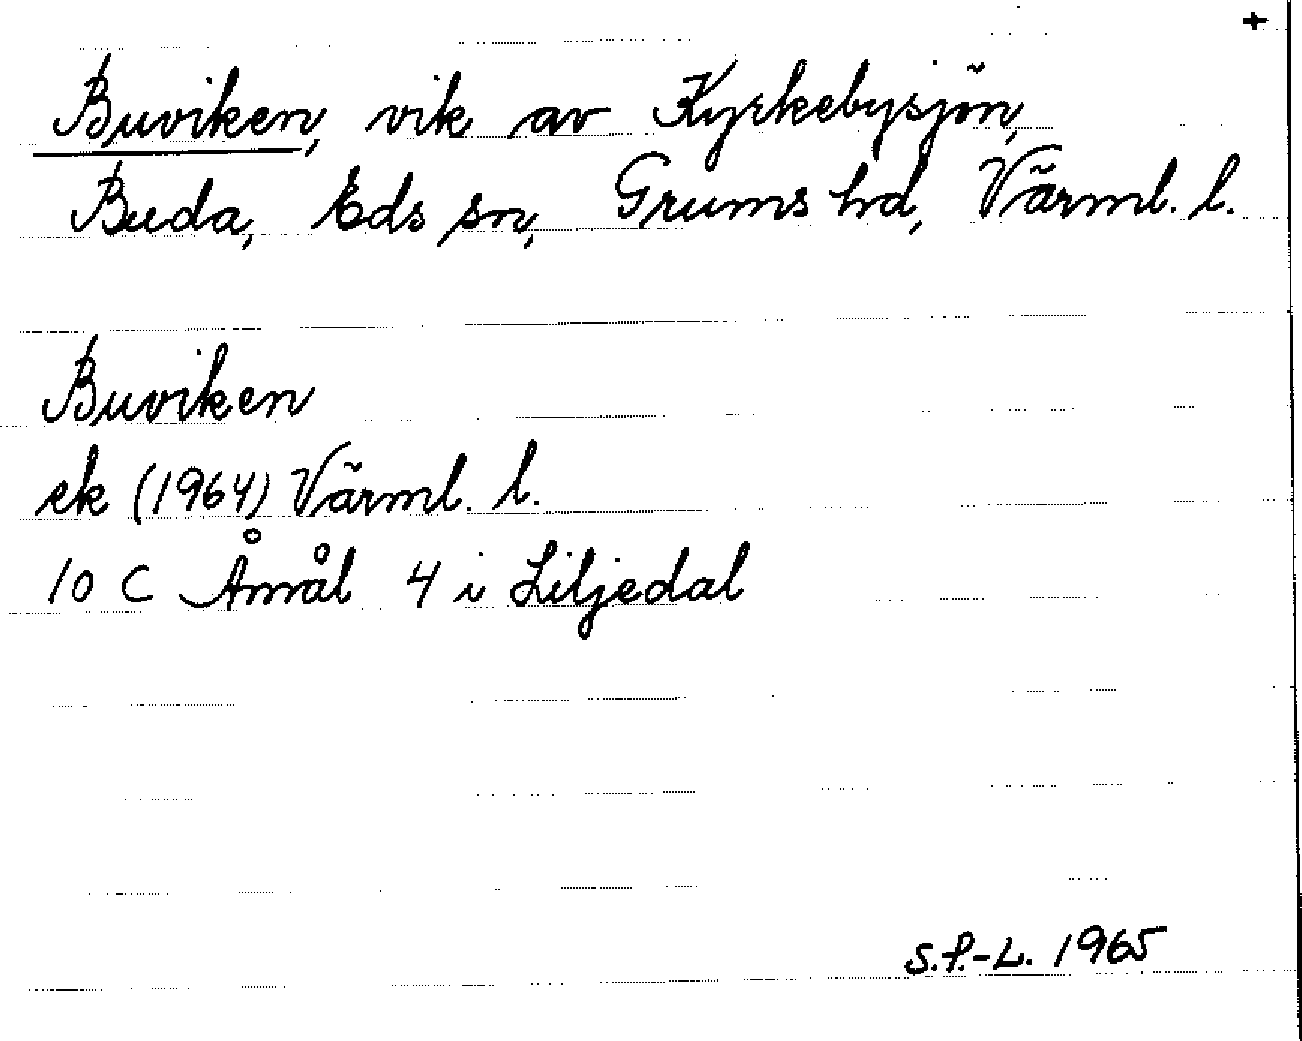 +
Buviken, vik av Kyrkebysjön,
Buda, Eds sn, Grums hd, Värml. l.
Buviken
ek (1964) Värml. l.
10 C Åmål 4 i Liljedal
S.P.-L. 1965